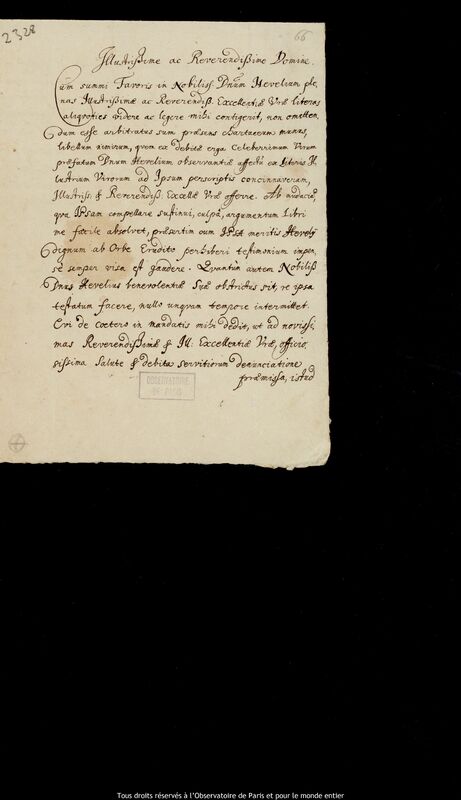 2328
66
Illustrissime ac Reverendissime Domine.
Cum summi Favoris in Nobiliss. Dnum Hevelium ple-
nas Illustrissimæ ac Reverendiss. Excellentiæ Vræ literas
aliquoties videre ac legere mihi contigerit, non omitten-
dum esse arbitratus sum præsens chartaceum munus,
libellum nimirum, quem ex debitæ erga Celeberrimum Virum
præfatum Dnum Hevelium observantiæ affectu ex literis Il-
lustrium Virorum ad Ipsum perscriptis concinnaveram,
Illustriss. & Reverendiss. Excellæ Vræ offerre. Ab audacia,
qua Ipsam compellare sustinui, culpâ, argumentum Libri
me facile absolvet, præsertim cum Ipsa meritis Hevelij
dignum ab Orbe Erudito perhiberi testimonium impen-
se semper visa est gaudere. Quantum autem Nobiliss
Dnus Hevelius benevolentiæ Suæ obstrictus sit, re ipsa
testatum facere, nullo unquam tempore intermittet.
Cui de cætero in mandatis mihi dedit, ut ad novissi-
mas Reverendissimæ & Ill. Excellentiæ Vræ, officio-
sissima Salute & debita servitiorum denunciatione
præmissa, istud
OBSERVATOIRE
DE PARIS
Tous droits réservés à l'Observatoire de Paris et pour le monde entier